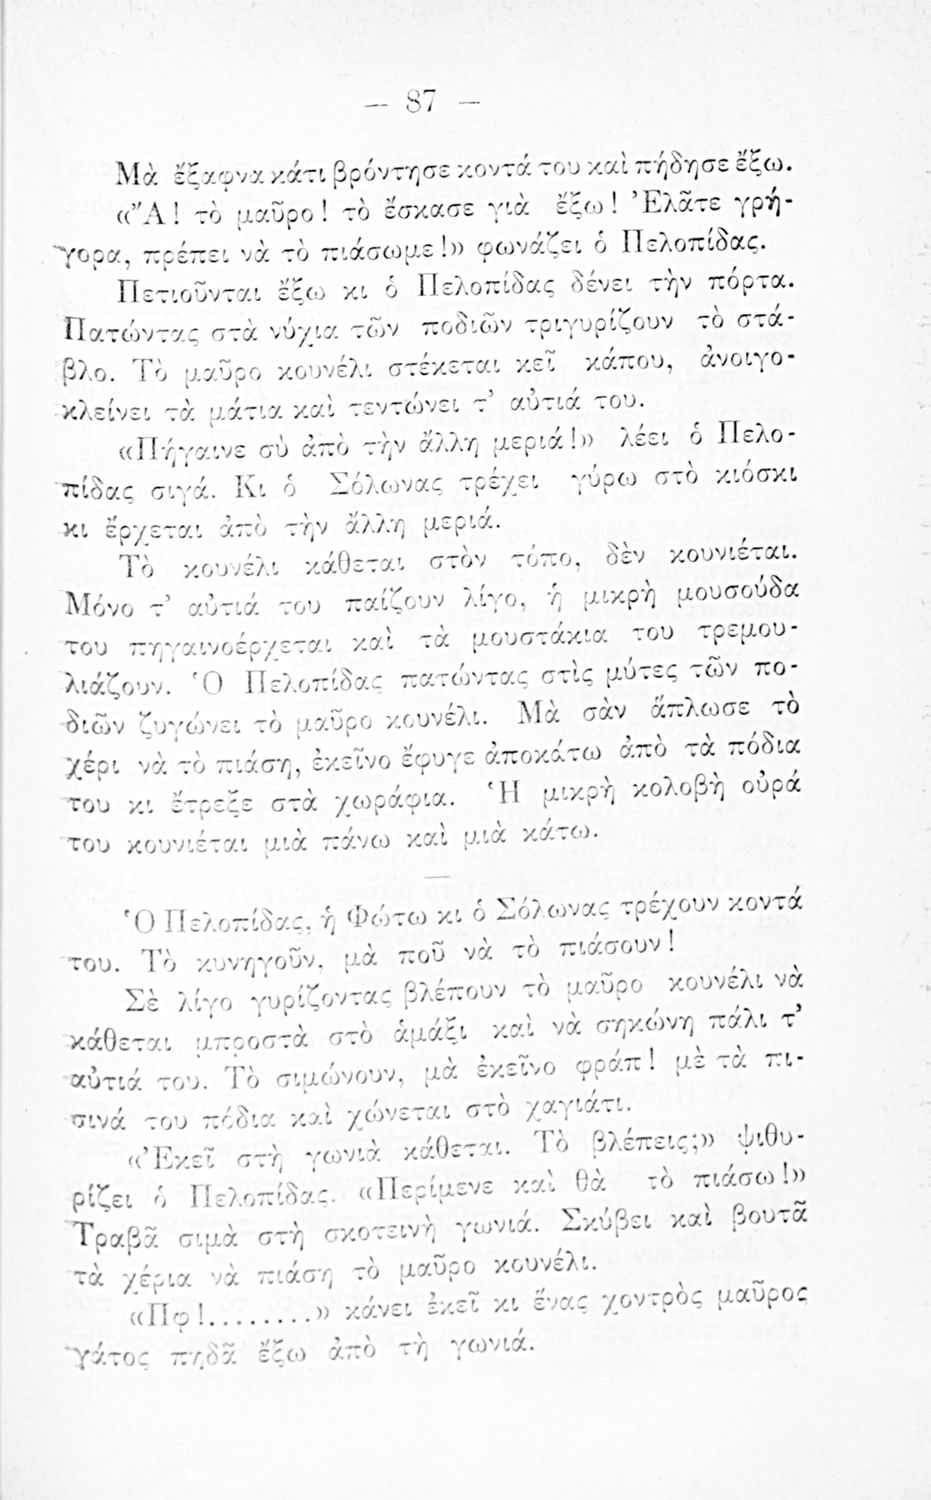 — 87 —
Μὰ ἔξαφνα κάτι βρόντησε κοντά του καὶ πήδησε ἔξω.
«Ἄ! τὸ μαῦρο! τὸ ἔσκασε γιὰ ἔξω! Ἐλᾶτε γρή-
γορα, πρέπει νὰ τὸ πιάσωμε!» φωνάζει ὁ Πελοπίδας.
Πετιοῦνται ἔξω κι ὁ Πελοπίδας δένει τὴν πόρτα.
Πατώντας στὰ νύχια τῶν ποδιῶν τριγυρίζουν τὸ στά-
βλο. Τὸ μαῦρο κουνέλι στέκεται κεῖ κάπου, ἀνοιγο-
κλείνει τὰ μάτια καὶ τεντώνει τ’ αὐτιά του.
«Πήγαινε σὺ ἀπὸ τὴν ἄλλη μεριά!» λέει ὁ Πελο-
πίδας σιγά. Κι ὁ Σόλωνας τρέχει γύρω στὸ κιόσκι
κι ἔρχεται ἀπὸ τὴν ἄλλη μεριά.
Τὸ κουνέλι κάθεται στὸν τόπο, δὲν κουνιέται.
Μόνο τ’ αὐτιά του παίζουν λίγο, ἡ μικρὴ μουσούδα
του πηγαινοέρχεται καὶ τὰ μουστάκια του τρεμου-
λιάζουν. Ὁ Πελοπίδας πατώντας στὶς μύτες τῶν πο-
διῶν ζυγώνει τὸ μαῦρο κουνέλι. Μὰ σὰν ἅπλωσε τὸ
χέρι νὰ τὸ πιάση, ἐκεῖνο ἔφυγε ἀποκάτω ἀπὸ τὰ πόδια
του κι ἔτρεξε στὰ χωράφια. Ἡ μικρὴ κολοβὴ οὐρά
του κουνιέται μιὰ πάνω καὶ μιὰ κάτω.
—
Ὁ Πελοπίδας, ἡ Φώτω κι ὁ Σόλωνας τρέχουν κοντά
του. Τὸ κυνηγοῦν, μὰ ποῦ νὰ τὸ πιάσουν!
Σὲ λίγο γυρίζοντας βλέπουν τὸ μαῦρο κουνέλι νὰ
κάθεται μπροστὰ στὸ ἁμάξι καὶ νὰ σηκώνη πάλι τ’
αὐτιά του. Τὸ σιμώνουν, μὰ ἐκεῖνο φράπ! μὲ τὰ πι-
σινά του πόδια καὶ χώνεται στὸ χαγιάτι.
«Ἐκεῖ στὴ γωνιὰ κάθεται. Τὸ βλέπεις;» ψιθυ-
ρίζει ὁ Πελοπίδας. «Περίμενε καὶ θὰ τὸ πιάσω!»
Τραβᾶ σιμὰ στὴ σκοτεινὴ γωνιά. Σκύβει καὶ βουτᾶ
τὰ χέρια νὰ πιάση τὸ μαῦρο κουνέλι.
«Πφ!........» κάνει ἐκεῖ κι ἕνας χοντρὸς μαῦρος
γάτος πηδᾶ ἔξω ἀπὸ τὴ γωνιά.